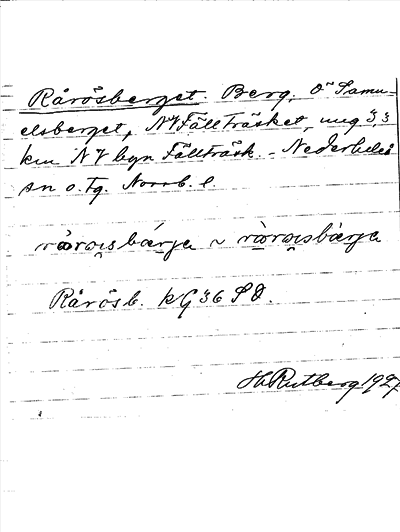 Råråsberget. Berg, Ö Samu-
elsberget, NV Fällträsket, ung 3,3
km NV byn Fällträsk. Nederkalix
sn o. tg. Norrb. l.
Råråsb. kG 36 SO.
H Rutberg 1927